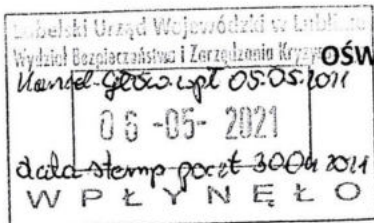 Lubelski Urząd Wojewódzki w Lublinie
Wydział Bezpieczeństwa i Zarządzania Kryzys
OŚW
wpł 05.05.2021
06 -05- 2021
data stemp poczt 30.04 2021
WPŁYNĘŁO